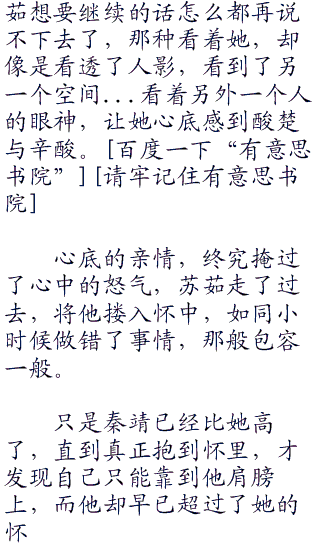 茹想要继续的话怎么都再说
不下去了，那种看着她，却
像是看透了人影，看到了另
一个空间...看着另外一个人
的眼神，让她心底感到酸楚
与辛酸。[百度一下“有意思
书院”][请牢记住有意思书
院]
心底的亲情，终究掩过
了心中的怒气，苏茹走了过
去，将他搂入怀中，如同小
时候做错了事情，那般包容
一般。
只是秦靖已经比她高
了，直到真正抱到怀里，才
发现自己只能靠到他肩膀
上，而他却早已超过了她的
怀